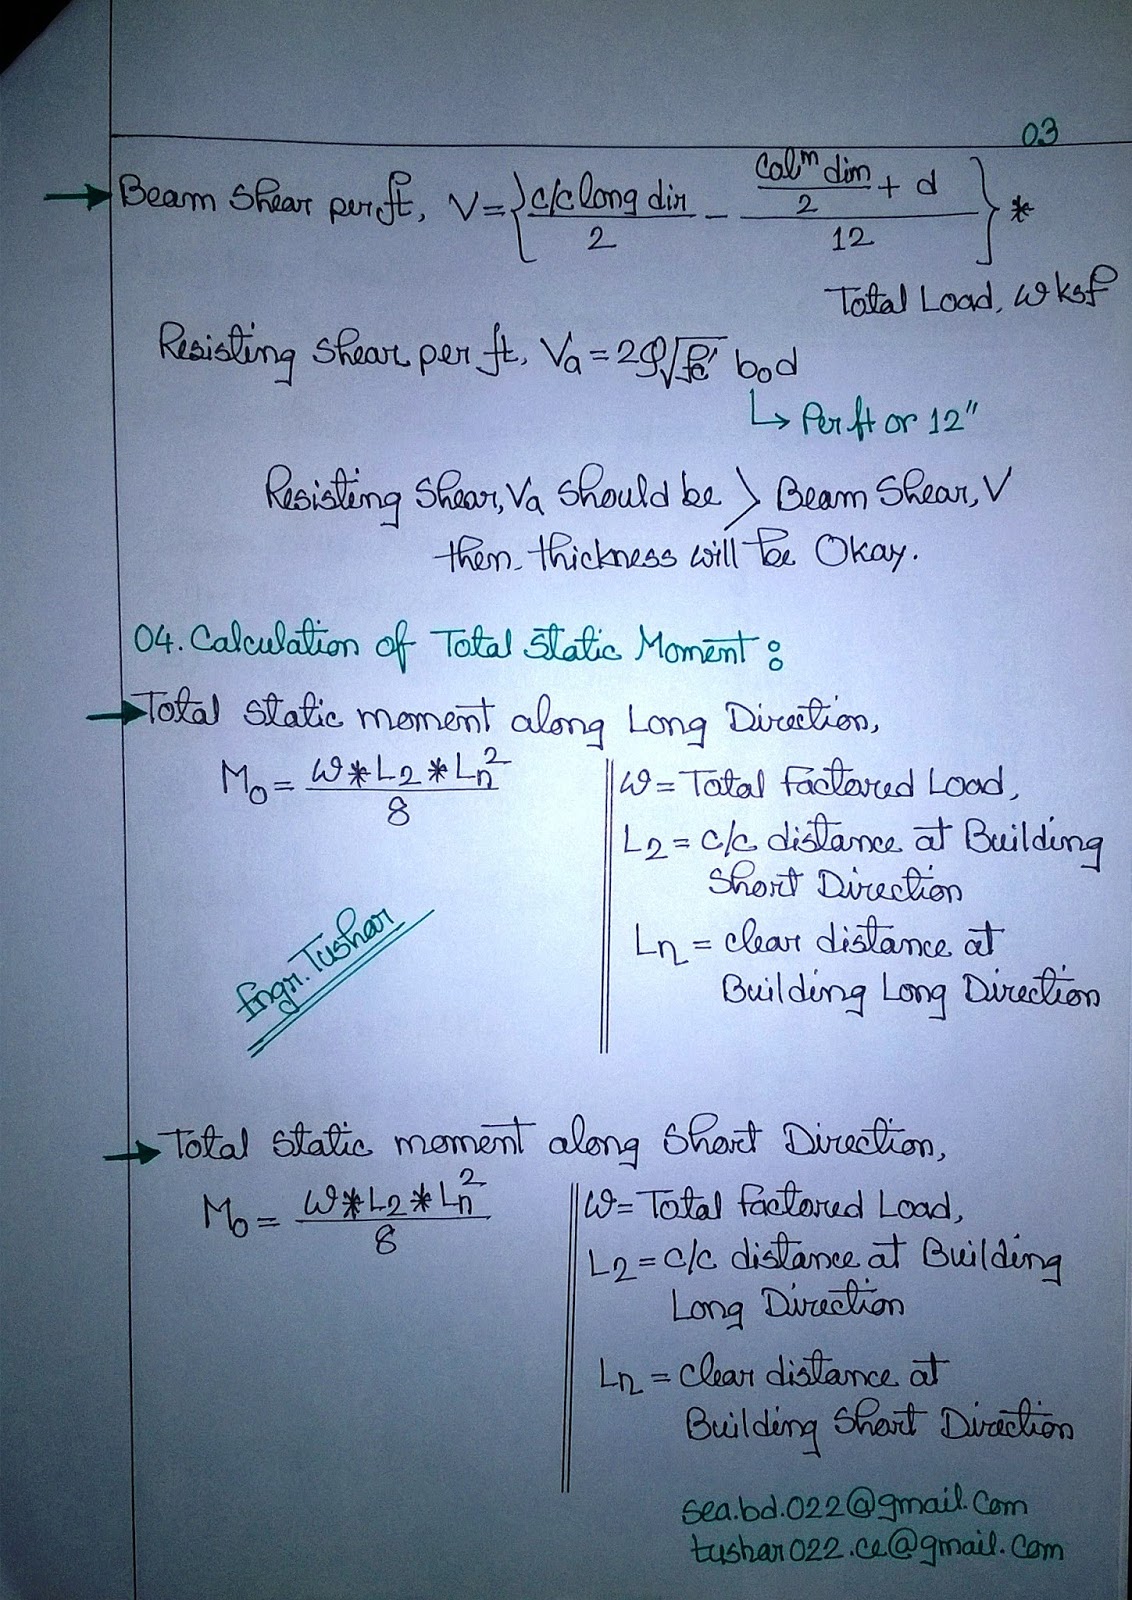 03
Beam Shear per ft, V = {c/c long dir/2 - (Colᵐ dim/2 + d)/12} *
Total Load, w ksf
Resisting Shear per ft, Va = 2φ√fc' b₀d
↳ Per ft or 12"
Resisting Shear, Va Should be > Beam Shear, V
then thickness will be Okay.
04. Calculation of Total Static Moment:
Total Static moment along Long Direction,
M₀ = w*L₂*Ln²/8
w = Total Factored Load,
L₂ = c/c distance at Building
Short Direction
Ln = clear distance at
Building Long Direction
Engr. Tushar
Total Static moment along Short Direction,
M₀ = w*L₂*Ln²/8
w = Total Factored Load,
L₂ = c/c distance at Building
Long Direction
Ln = clear distance at
Building Short Direction
sea.bd.022@gmail.com
tushar022.ce@gmail.com